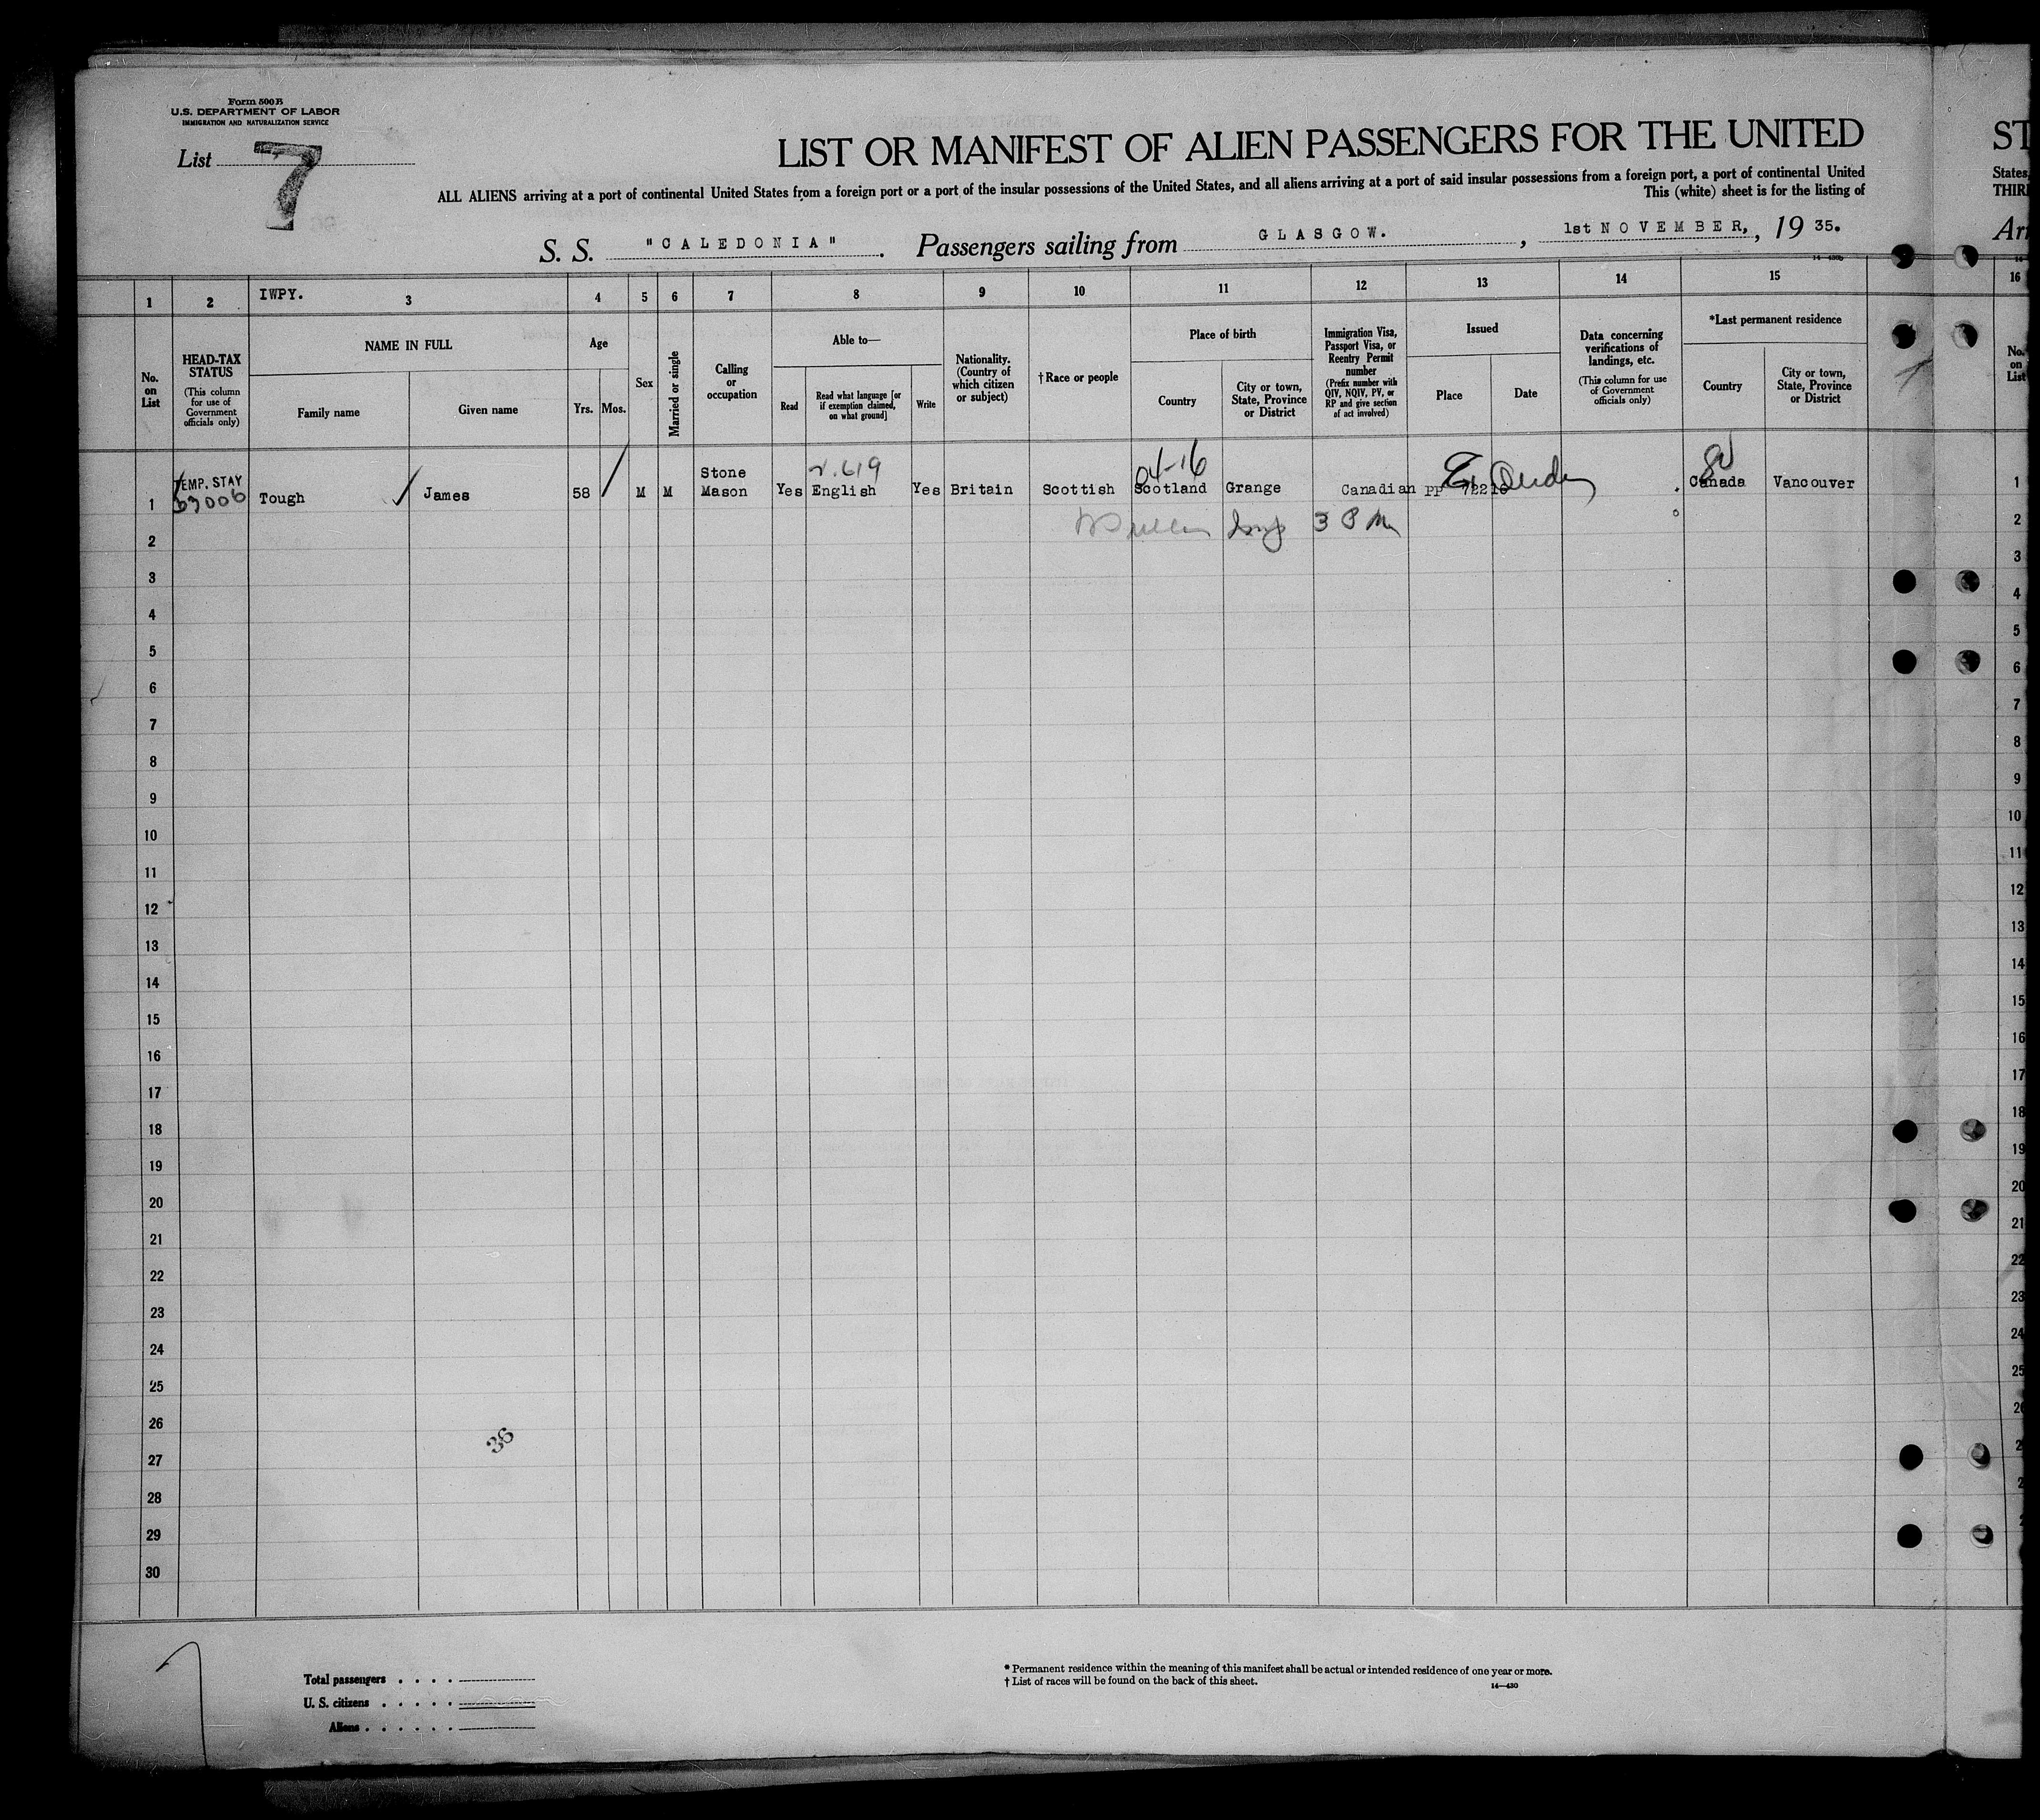 Form 500B
U.S. DEPARTMENT OF LABOR
IMMIGRATION AND NATURALIZATION SERVICE
List 7
LIST OR MANIFEST OF ALIEN PASSENGERS FOR THE UNITED
ST
ALL ALIENS arriving at a port of continental United States from a foreign port or a port of the insular possessions of the United States, and all aliens arriving at a port of said insular possessions from a foreign port, a port of continental United
States,
This (white) sheet is for the listing of
S. S. "CALEDONIA". Passengers sailing from GLASGOW., 1st NOVEMBER, 1935.
1 2 IWPY. 3 4 5 6 7 8 9 10 11 12 13 14 15 16
No. on List
HEAD-TAX STATUS
(This column for use of Government officials only)
NAME IN FULL
Family name
Given name
Age
Yrs. Mos.
Sex
Married or single
Calling or occupation
Able to—
Read
Read what language [or if exemption claimed, on what ground]
Write
Nationality. (Country of which citizen or subject)
† Race or people
Place of birth
Country
City or town, State, Province or District
Immigration Visa, Passport Visa, or Reentry Permit number
(Prefix number with QIV, NQIV, PV, or RP and give section of act involved)
Issued
Place
Date
Data concerning verifications of landings, etc.
(This column for use of Government officials only)
*Last permanent residence
Country
City or town, State, Province or District
No. on List
TEMP. STAY
04-16
1 Tough James 58 M M Stone Mason Yes English Yes Britain Scottish Scotland Grange Canadian PP Canada Vancouver 1
2 2
3 3
4 4
5 5
6 6
7 7
8 8
9 9
10 10
11 11
12 12
13 13
14 14
15 15
16 16
17 17
18 18
19 19
20 20
21 21
22 22
23 23
24 24
25 25
26
27
28
29
30
36
Total passengers
U. S. citizens
Aliens
* Permanent residence within the meaning of this manifest shall be actual or intended residence of one year or more.
† List of races will be found on the back of this sheet.
14—430